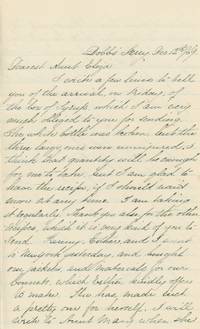 Dobb's Ferry, Dec 12th/
Dearest Aunt
I write a few lines to tell
you of the arrival, on Friday, of
the box of Syrup which I am very
much obliged to you for sending.
The white bottle was broken but the
three large ones were uninjured, &
think that quantity will be enough
for me to take, but I am glad to
have the recipe, if I should want
more at any time. I am taking
it regularly. Thank you also for the other
recipes, which it is very kind of you to
send. Fanny, & I spent
in New York yesterday, and bought
our jackets, and materials for our
bonnets, which kindly offers
to make. She has made such
a pretty one for herself. I will
write to Aunt Mary when she